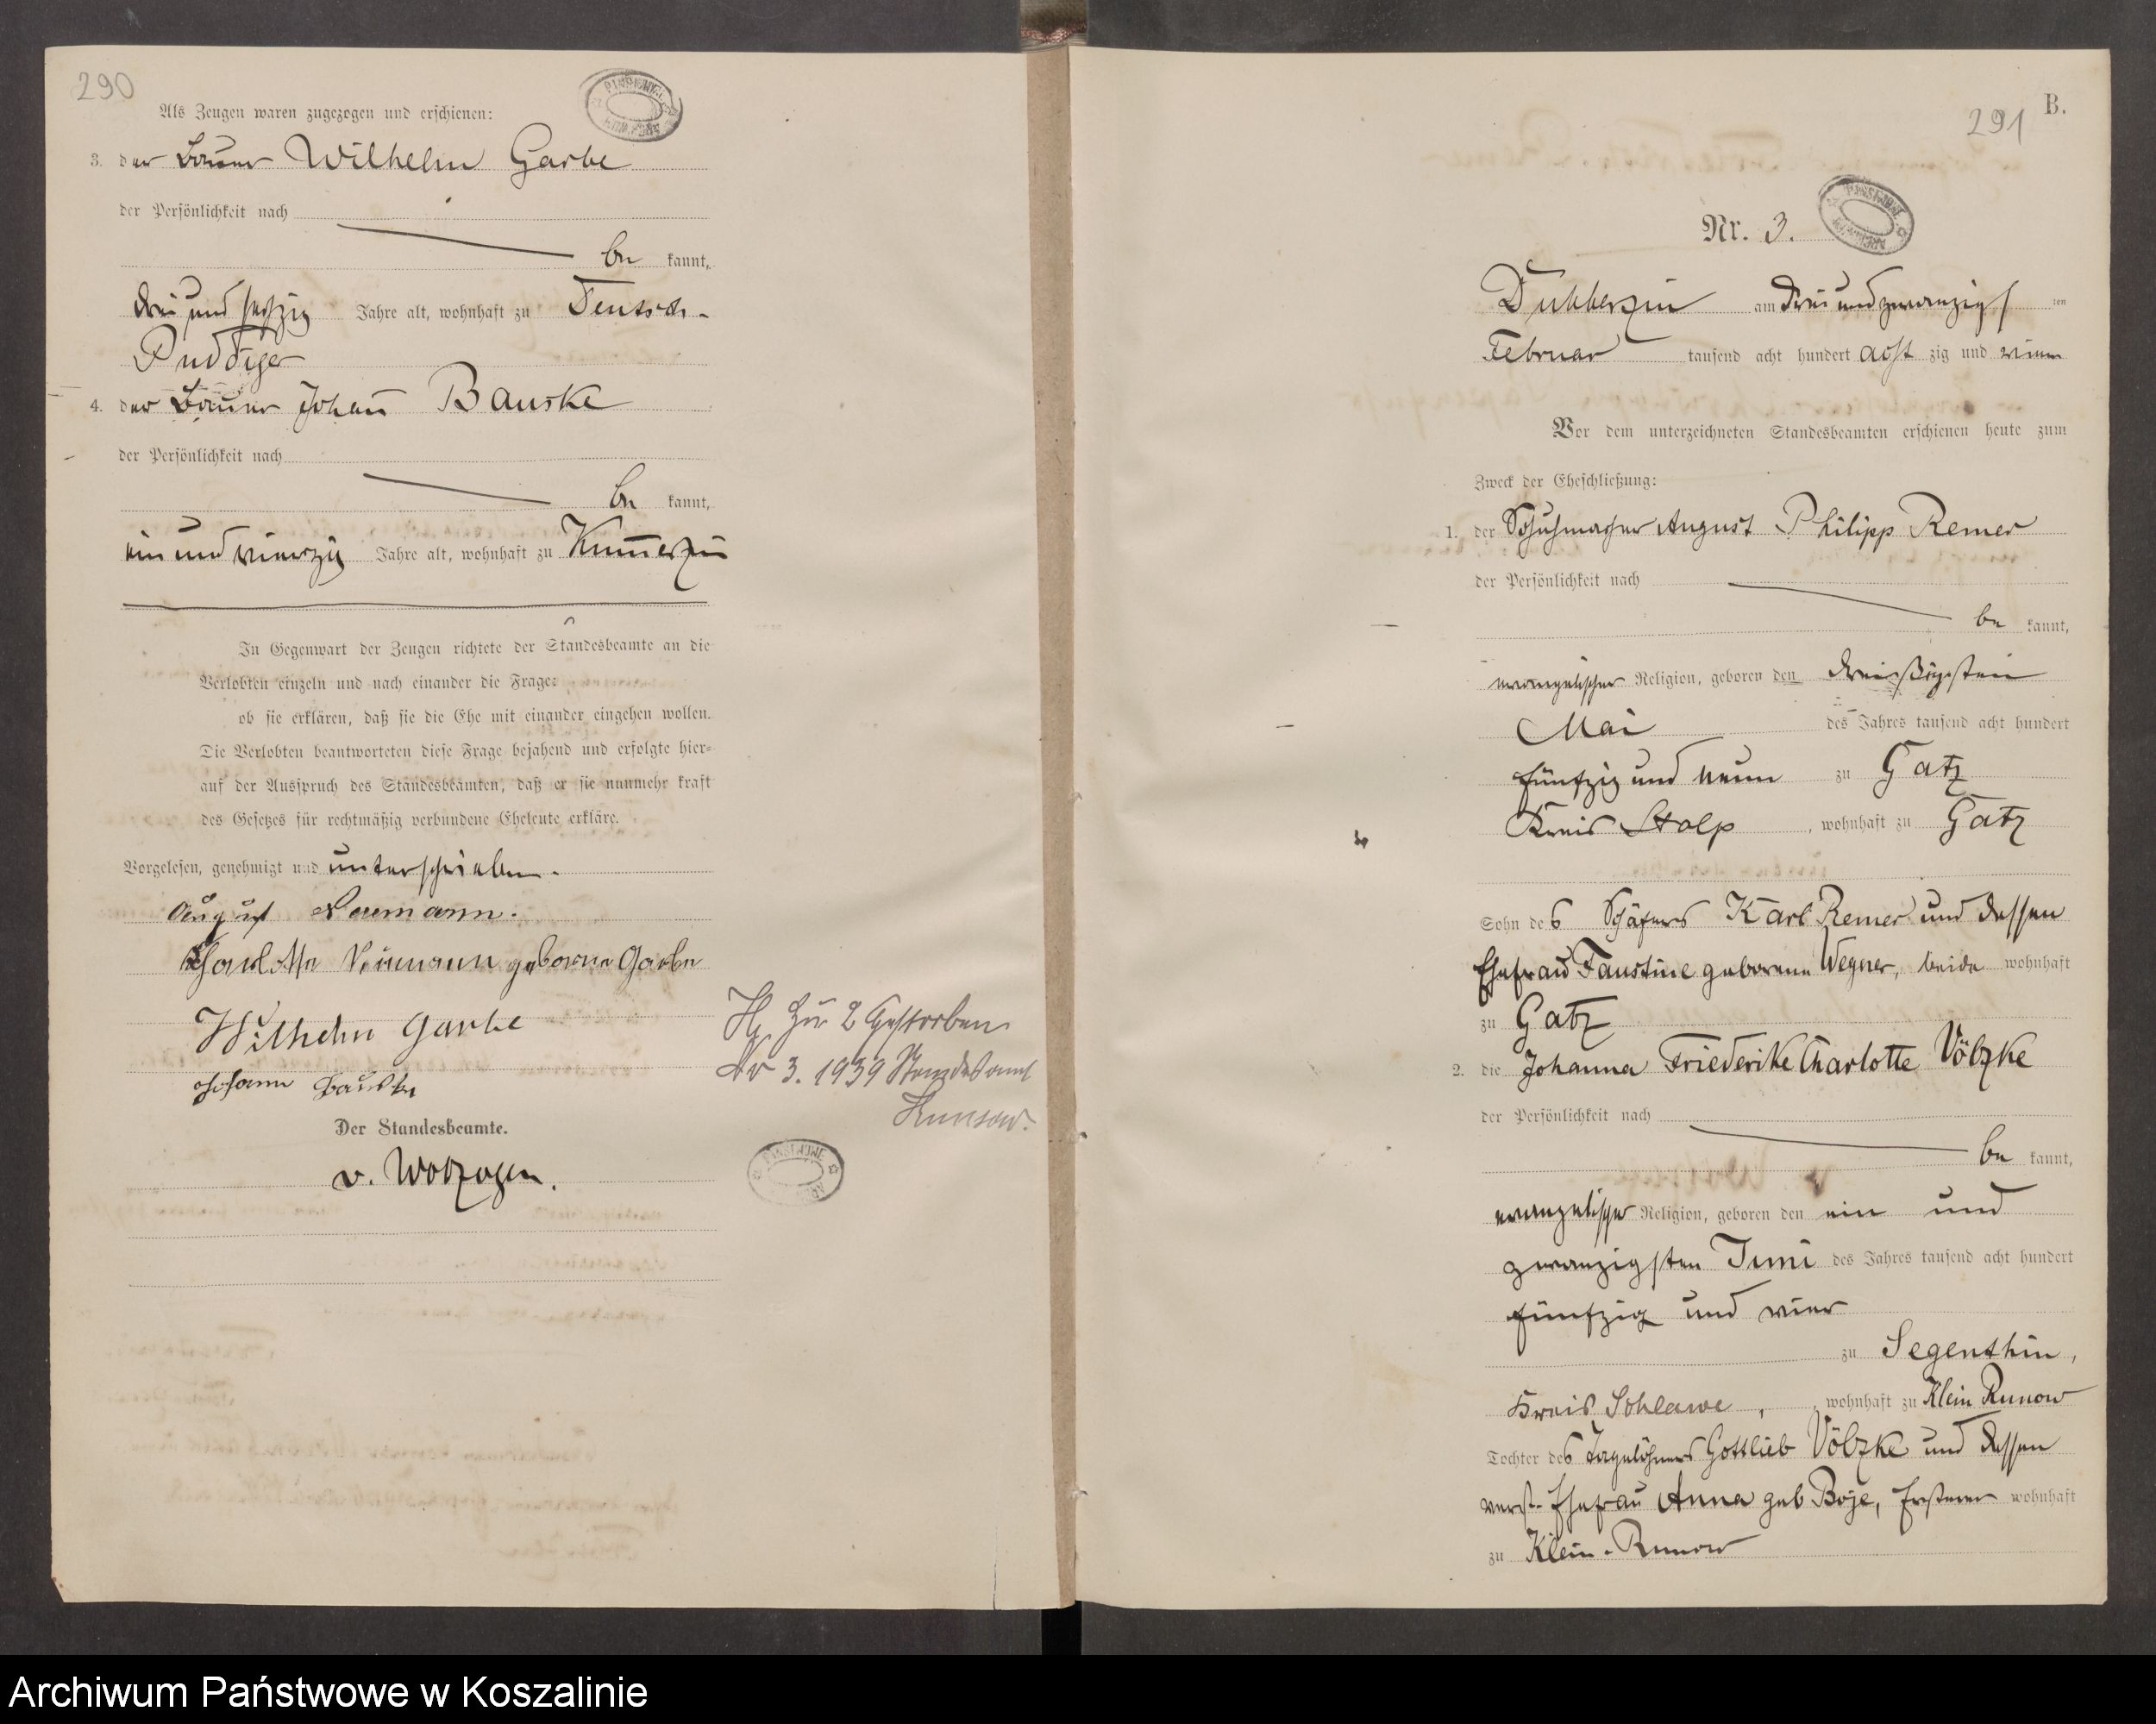 290
Als Zeugen waren zugezogen und erschienen:
3. der Bauer Wilhelm Garbe
der Persönlichkeit nach
be kannt,
drei und sechzig Jahre alt, wohnhaft zu Deutsch-
Puddiger
4. der Bauer Johañ Bauske
der Persönlichkeit nach
be kannt,
ein und vierzig Jahre alt, wohnhaft zu Kum̅erzin
In Gegenwart der Zeugen richtete der Standesbeamte an die
Verlobten einzeln und nach einander die Frage:
ob sie erklären, daß sie die Ehe mit einander eingehen wollen.
Die Verlobten beantworteten diese Frage bejahend und erfolgte hier-
auf der Ausspruch des Standesbeamten, daß er sie nunmehr kraft
des Gesetzes für rechtmäßig verbundene Eheleute erkläre.
Vorgelesen, genehmigt und unterschrieben.
August Neumann.
Charlotte Neumann geborne Garbe
Wilhelm Garbe
Johann Bauske
Der Standesbeamte.
v. Wolzogen.
H. Zu 2 Gestorben
Nr 3. 1939 Standesamt
Kunsow.
B.
291
Nr. 3.
Dubberzin am drei und zwanzigsten
Februar tausend acht hundert acht zig und vier
Vor dem unterzeichneten Standesbeamten erschienen heute zum
Zweck der Eheschließung:
1. der Schuhmacher August Philipp Remer
der Persönlichkeit nach
be kannt,
evangelischer Religion, geboren den dreißigsten
Mai des Jahres tausend acht hundert
fünfzig und neun zu Gatz
Kreis Stolp, wohnhaft zu Gatz
Sohn des Schäfers Karl Remer und dessen
Ehefrau Faustine geborene Wegner, beide wohnhaft
zu Gatz
2. die Johanna Friederike Charlotte Völzke
der Persönlichkeit nach
be kannt,
evangelischer Religion, geboren den ein und
zwanzigsten Juni des Jahres tausend acht hundert
fünfzig und vier
zu Segenthin,
Kreis Schlawe, wohnhaft zu Klein Runow
Tochter des Tagelöhners Gottlieb Völzke und dessen
verst. Ehefrau Anna geb Boje, Ersterer wohnhaft
zu Klein-Runow
Archiwum Państwowe w Koszalinie